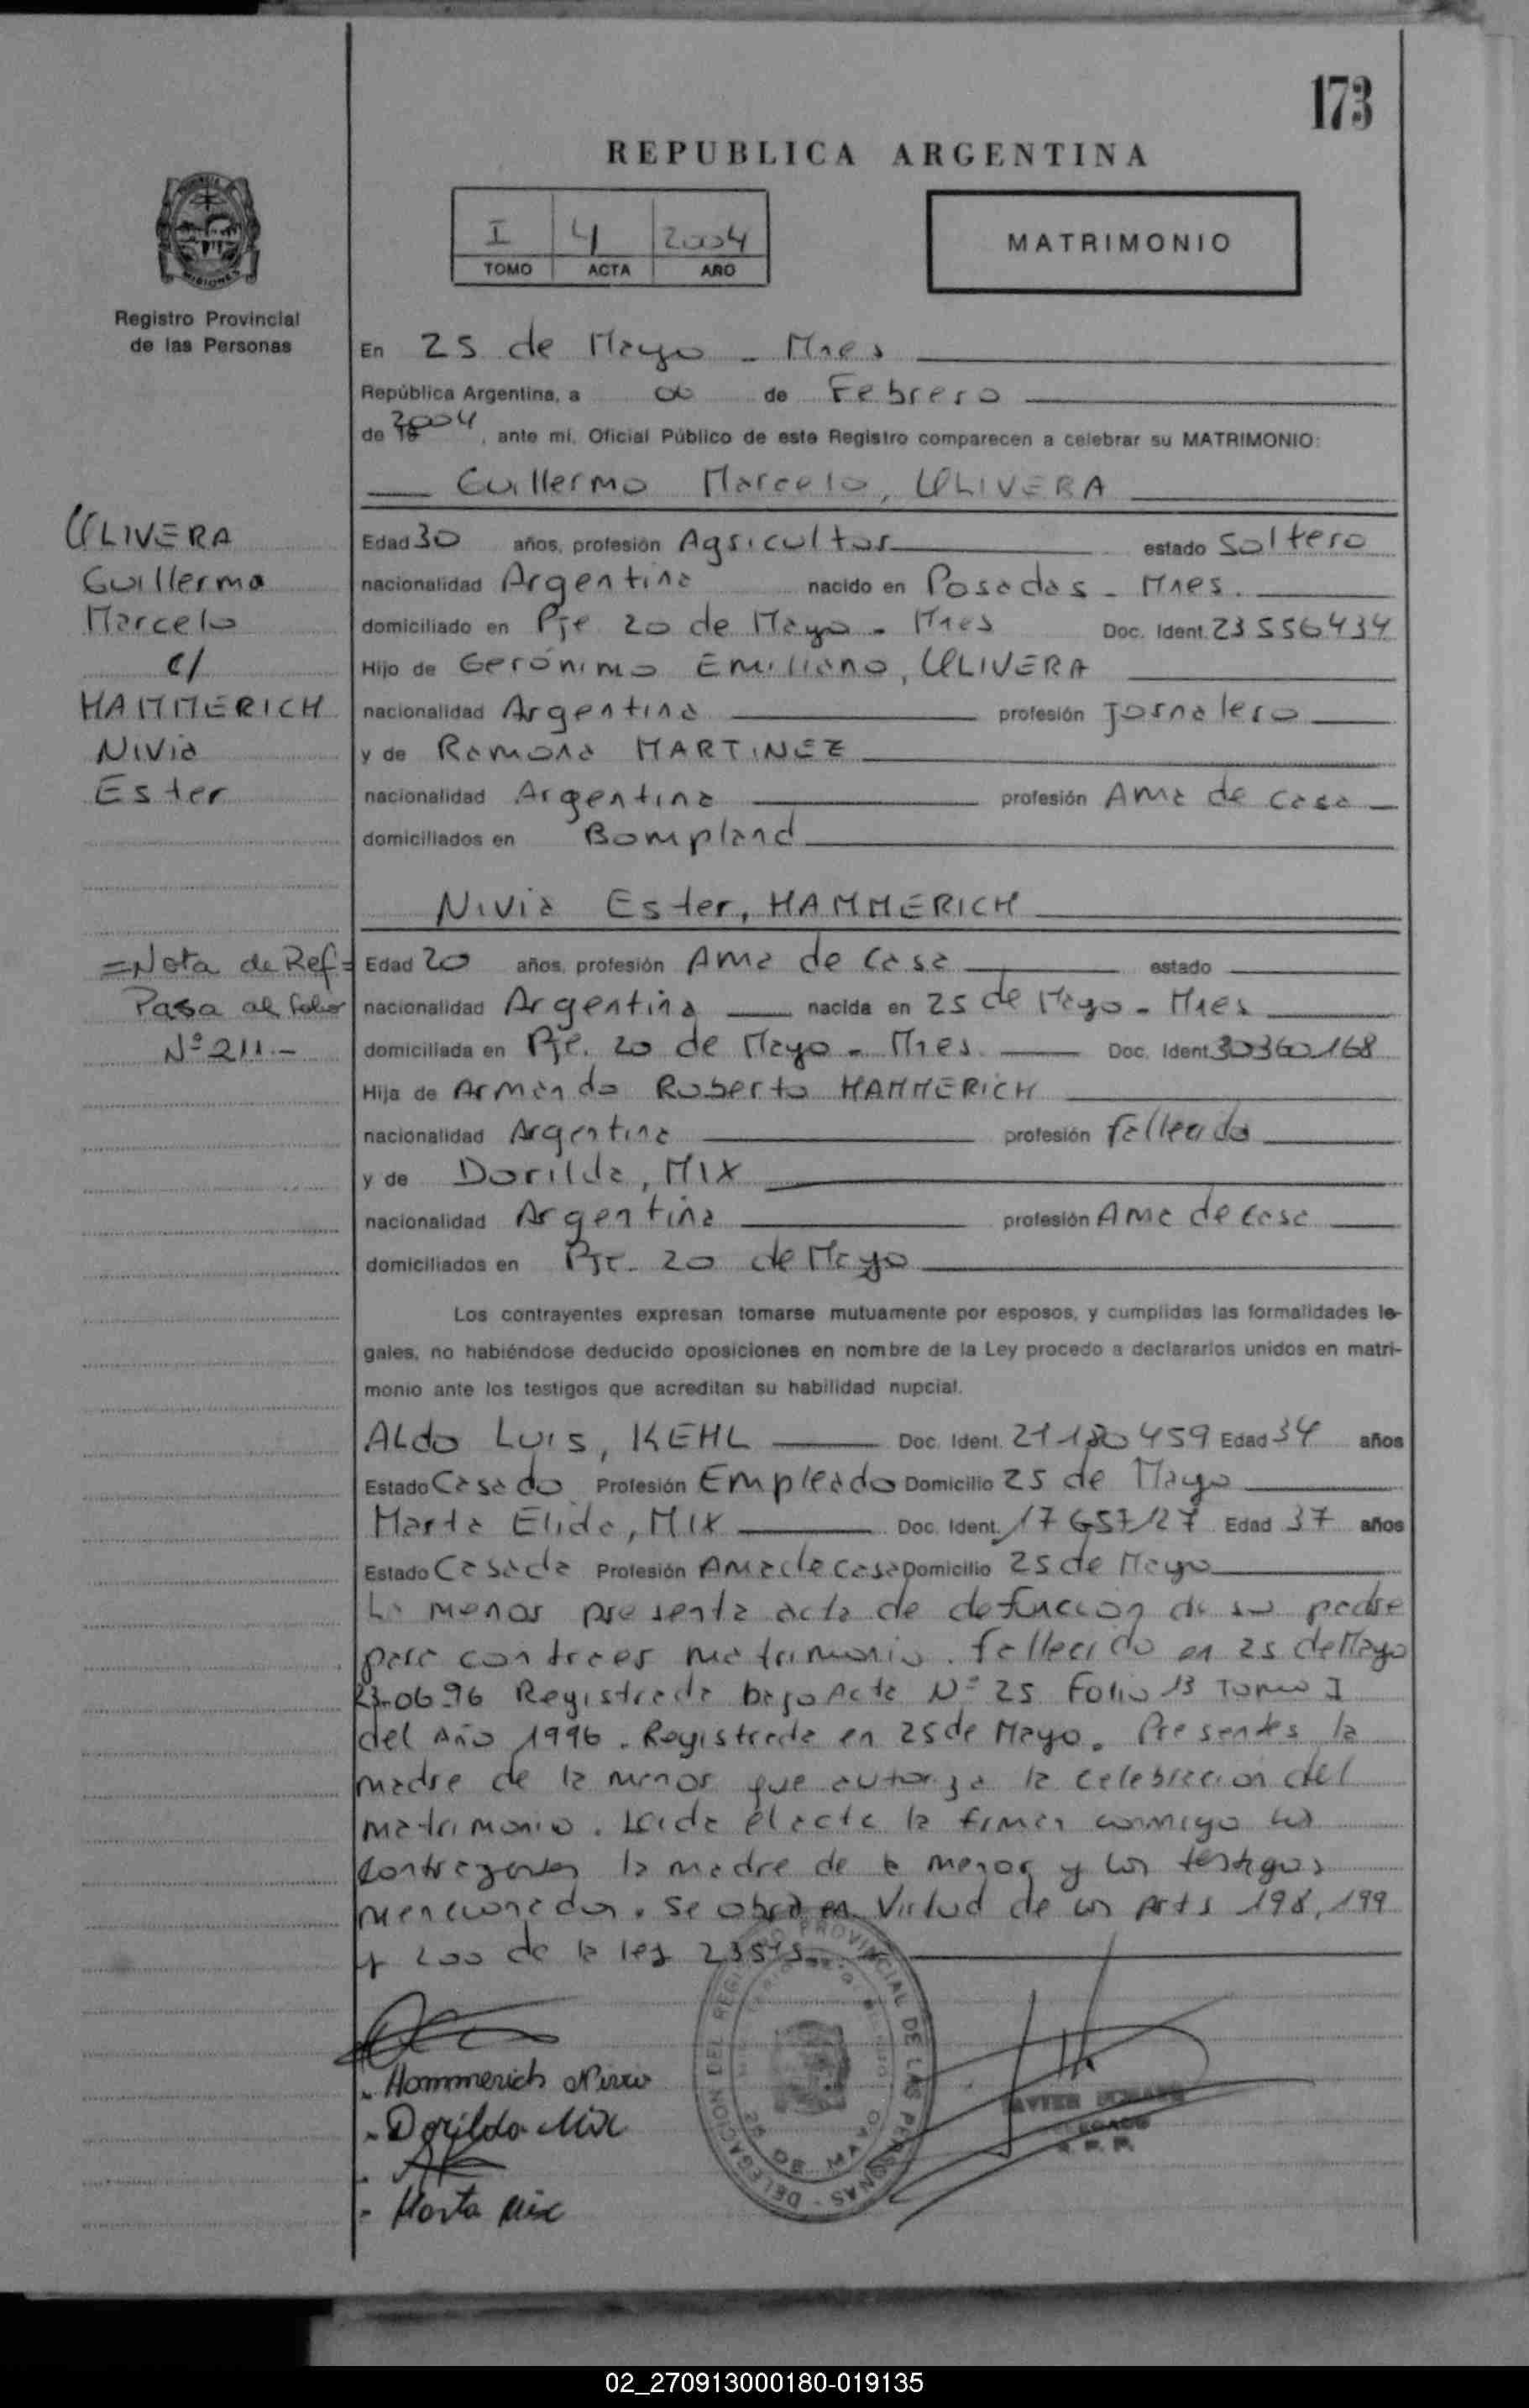 173
REPUBLICA ARGENTINA
I 4 2004
TOMO ACTA AÑO
MATRIMONIO
MISIONES
Registro Provincial
de las Personas
En 25 de Mayo - Mnes
República Argentina, a 06 de Febrero
de 19 2004, ante mí, Oficial Público de este Registro comparecen a celebrar su MATRIMONIO:
Guillermo Marcelo, OLIVERA
OLIVERA
Guillermo
Marcelo
c/
HAMMERICH
Nivia
Ester
Edad 30 años, profesión Agricultor estado Soltero
nacionalidad Argentina nacido en Posadas - Mnes.
domiciliado en Pje 20 de Mayo - Mnes Doc. Ident. 23556434
Hijo de Gerónimo Emiliano, OLIVERA
nacionalidad Argentina profesión Jornalero
y de Ramona MARTINEZ
nacionalidad Argentina profesión Ama de casa
domiciliados en Bompland
Nivia Ester, HAMMERICH
=Nota de Ref=
Pasa al folio
Nº 211.-
Edad 20 años, profesión Ama de Casa estado
nacionalidad Argentina nacida en 25 de Mayo - Mnes
domiciliada en Pje. 20 de Mayo - Mnes. Doc. Ident. 30360168
Hija de Armando Roberto HAMMERICH
nacionalidad Argentina profesión fallecido
y de Dorilda, MIX
nacionalidad Argentina profesión Ama de casa
domiciliados en Pje. 20 de Mayo
Los contrayentes expresan tomarse mutuamente por esposos, y cumplidas las formalidades le-
gales, no habiéndose deducido oposiciones en nombre de la Ley procedo a declararlos unidos en matri-
monio ante los testigos que acreditan su habilidad nupcial.
ALdo Luis, KEHL Doc. Ident. 21180459 Edad 34 años
Estado Casado Profesión Empleado Domicilio 25 de Mayo
Marta Elida, MIX Doc. Ident. 17657127 Edad 37 años
Estado Casada Profesión Ama de casa Domicilio 25 de Mayo
La menor presenta acta de defunción de su padre
para contraer matrimonio. fallecido en 25 de Mayo
23-06-96 Registrada bajo Acta Nº 25 Folio 13 Tomo I
del Año 1996. Registrada en 25 de Mayo. Presentes la
madre de la menor que autoriza la celebración del
matrimonio. Leida el acta la firman conmigo los
contrayentes la madre de la menor y los testigos
mencionados. Se obra en Virtud de los Arts 198, 199
y 200 de la ley 23515.
Hammerich Nivia
- Dorilda Mix
- Marta Mix
DELEGACION DEL REGISTRO PROVINCIAL DE LAS PERSONAS
25 DE MAYO
R. P. P.
02_270913000180-019135